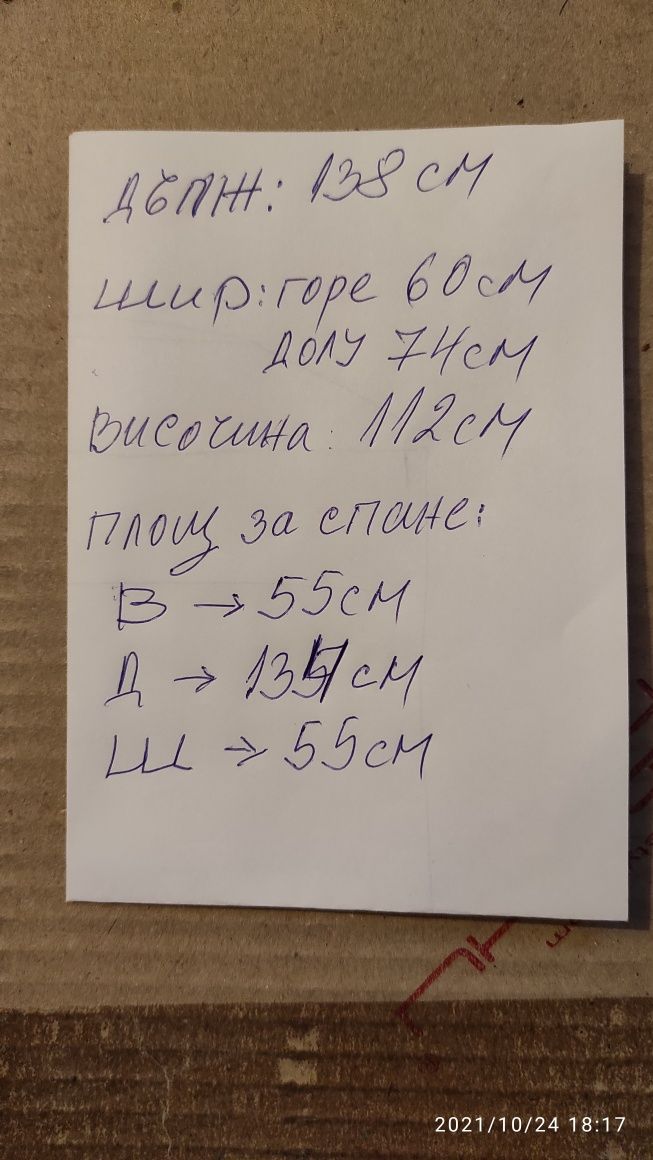 Дълж: 138 см
Шир: горе 60 см
долу 74 см
Височина: 112 см
Площ за спане:
В → 55 см
Д → 137 см
Ш → 55 см
2021/10/24 18:17